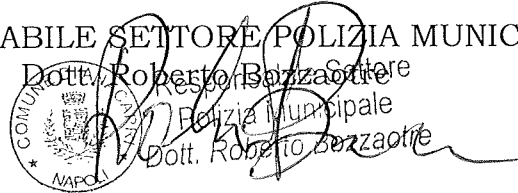 ABILE SETTORE POLIZIA MUNIC
Dott. Roberto Bozzaotre
Responsabile Settore
Polizia Municipale
Dott. Roberto Bozzaotre
COMUNE
NAPOLI